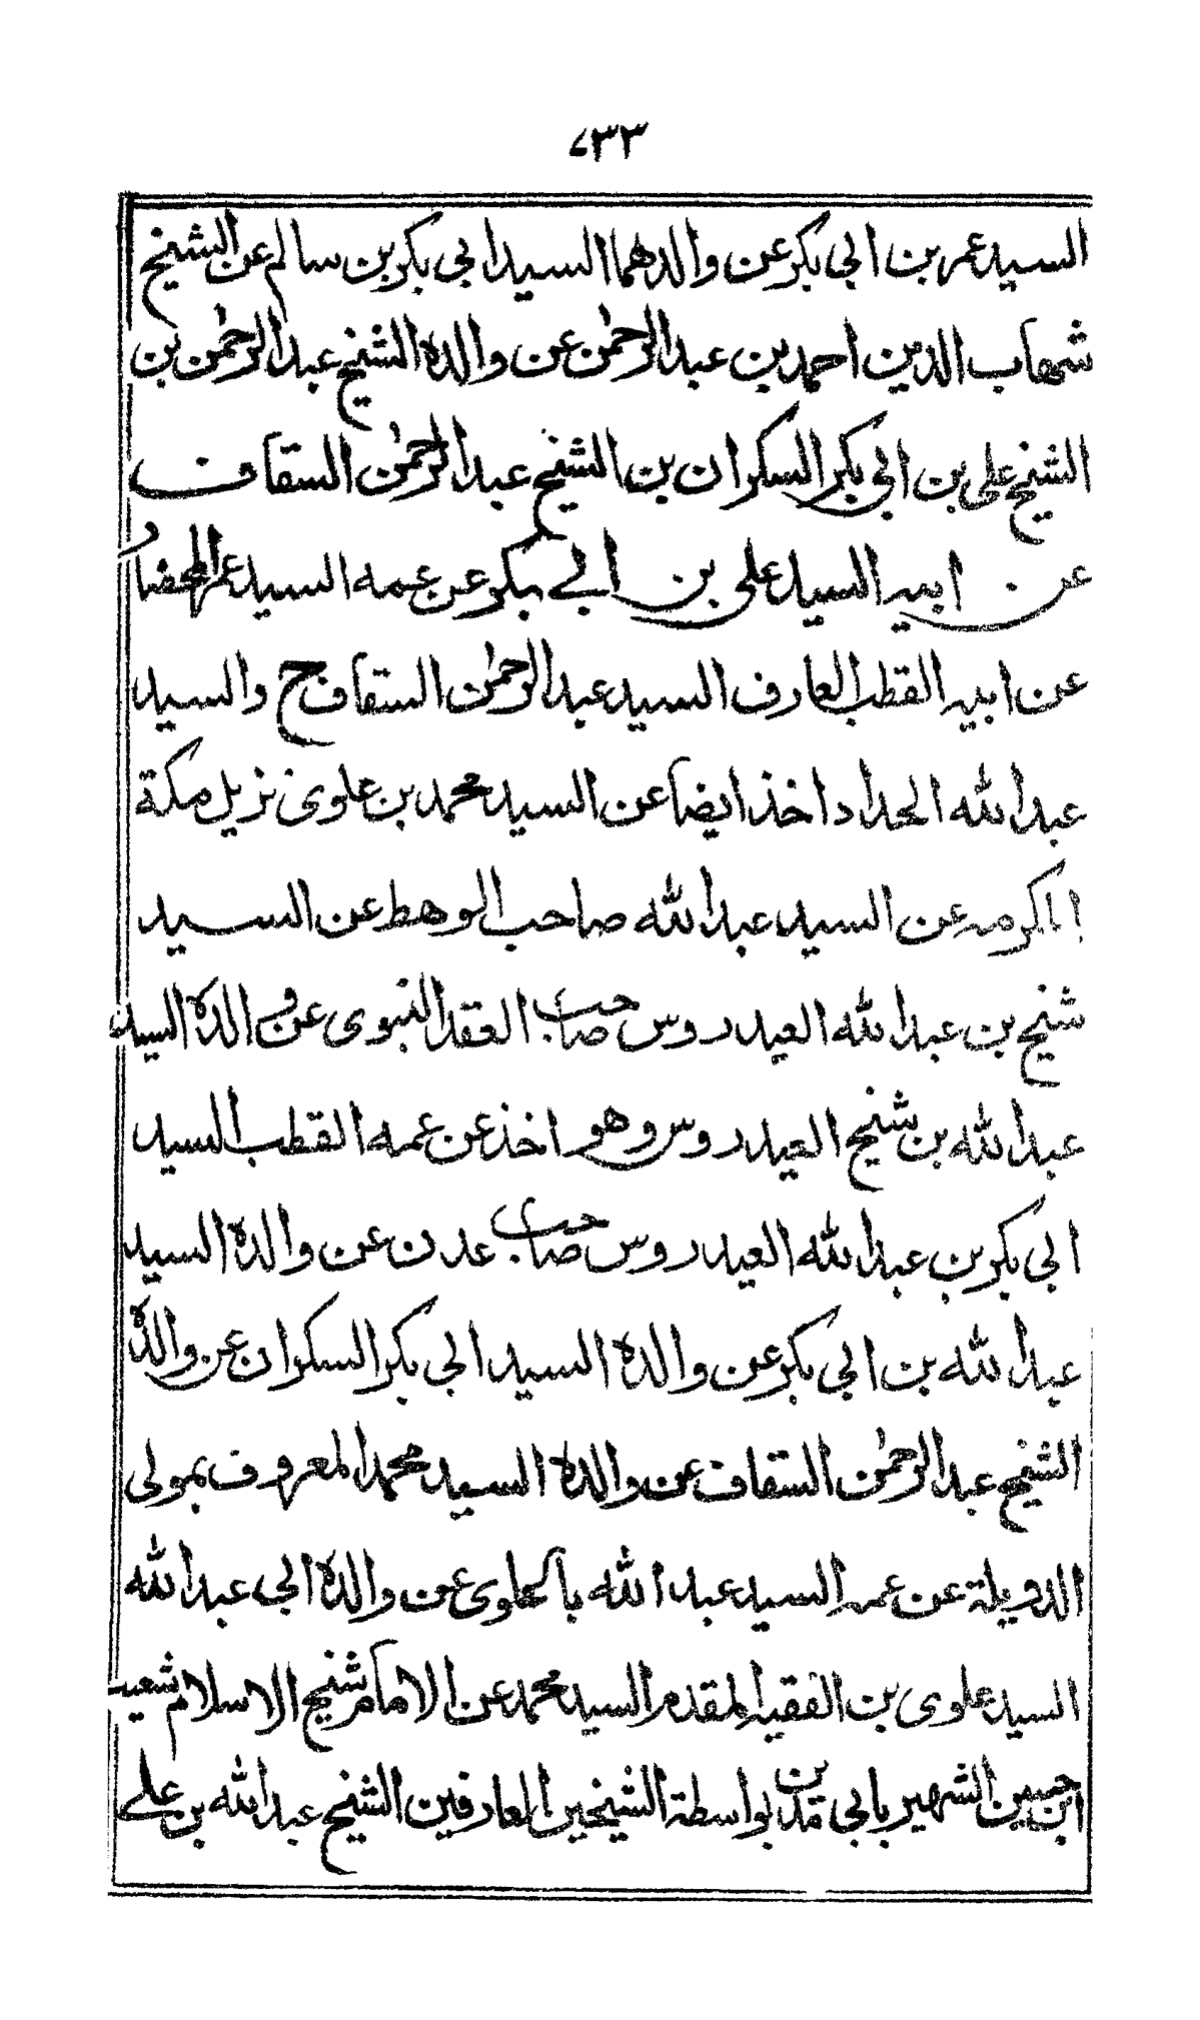 ٧٣٣
السيد عمر بن ابي بكر عن والدهما السيد ابي بكر بن سالم عن الشيخ
شهاب الدين احمد بن عبد الرحمٰن عن والده الشيخ عبد الرحمٰن بن
الشيخ علي بن ابي بكر السكران بن الشيخ عبد الرحمٰن السقاف
عن ابيه السيد علي بن ابي بكر عن عمه السيد عمر المحضار
عن ابيه القطب العارف السيد عبد الرحمٰن السقاف ح والسيد
عبد الله الحداد اخذ ايضا عن السيد محمد بن علوي نزيل مكة
المكرمه عن السيد عبد الله صاحب الوهط عن السيد
شيخ بن عبد الله العيدروس صاحب العقد النبوي عن والده السيد
عبد الله بن شيخ العيدروس وهو اخذ عن عمه القطب السيد
ابي بكر بن عبد الله العيدروس صاحب عدن عن والده السيد
عبد الله بن ابي بكر عن والده السيد ابي بكر السكران عن والده
الشيخ عبد الرحمٰن السقاف عن والده السيد محمد المعروف بمولى
الدويلة عن عمه السيد عبد الله باعلوي عن والده ابي عبد الله
السيد علوي بن الفقيه المقدم السيد محمد عن الامام شيخ الاسلام شعيب
ابن حسين الشهير بابي مدين بواسطة الشيخين العارفين الشيخ عبد الله بن علي